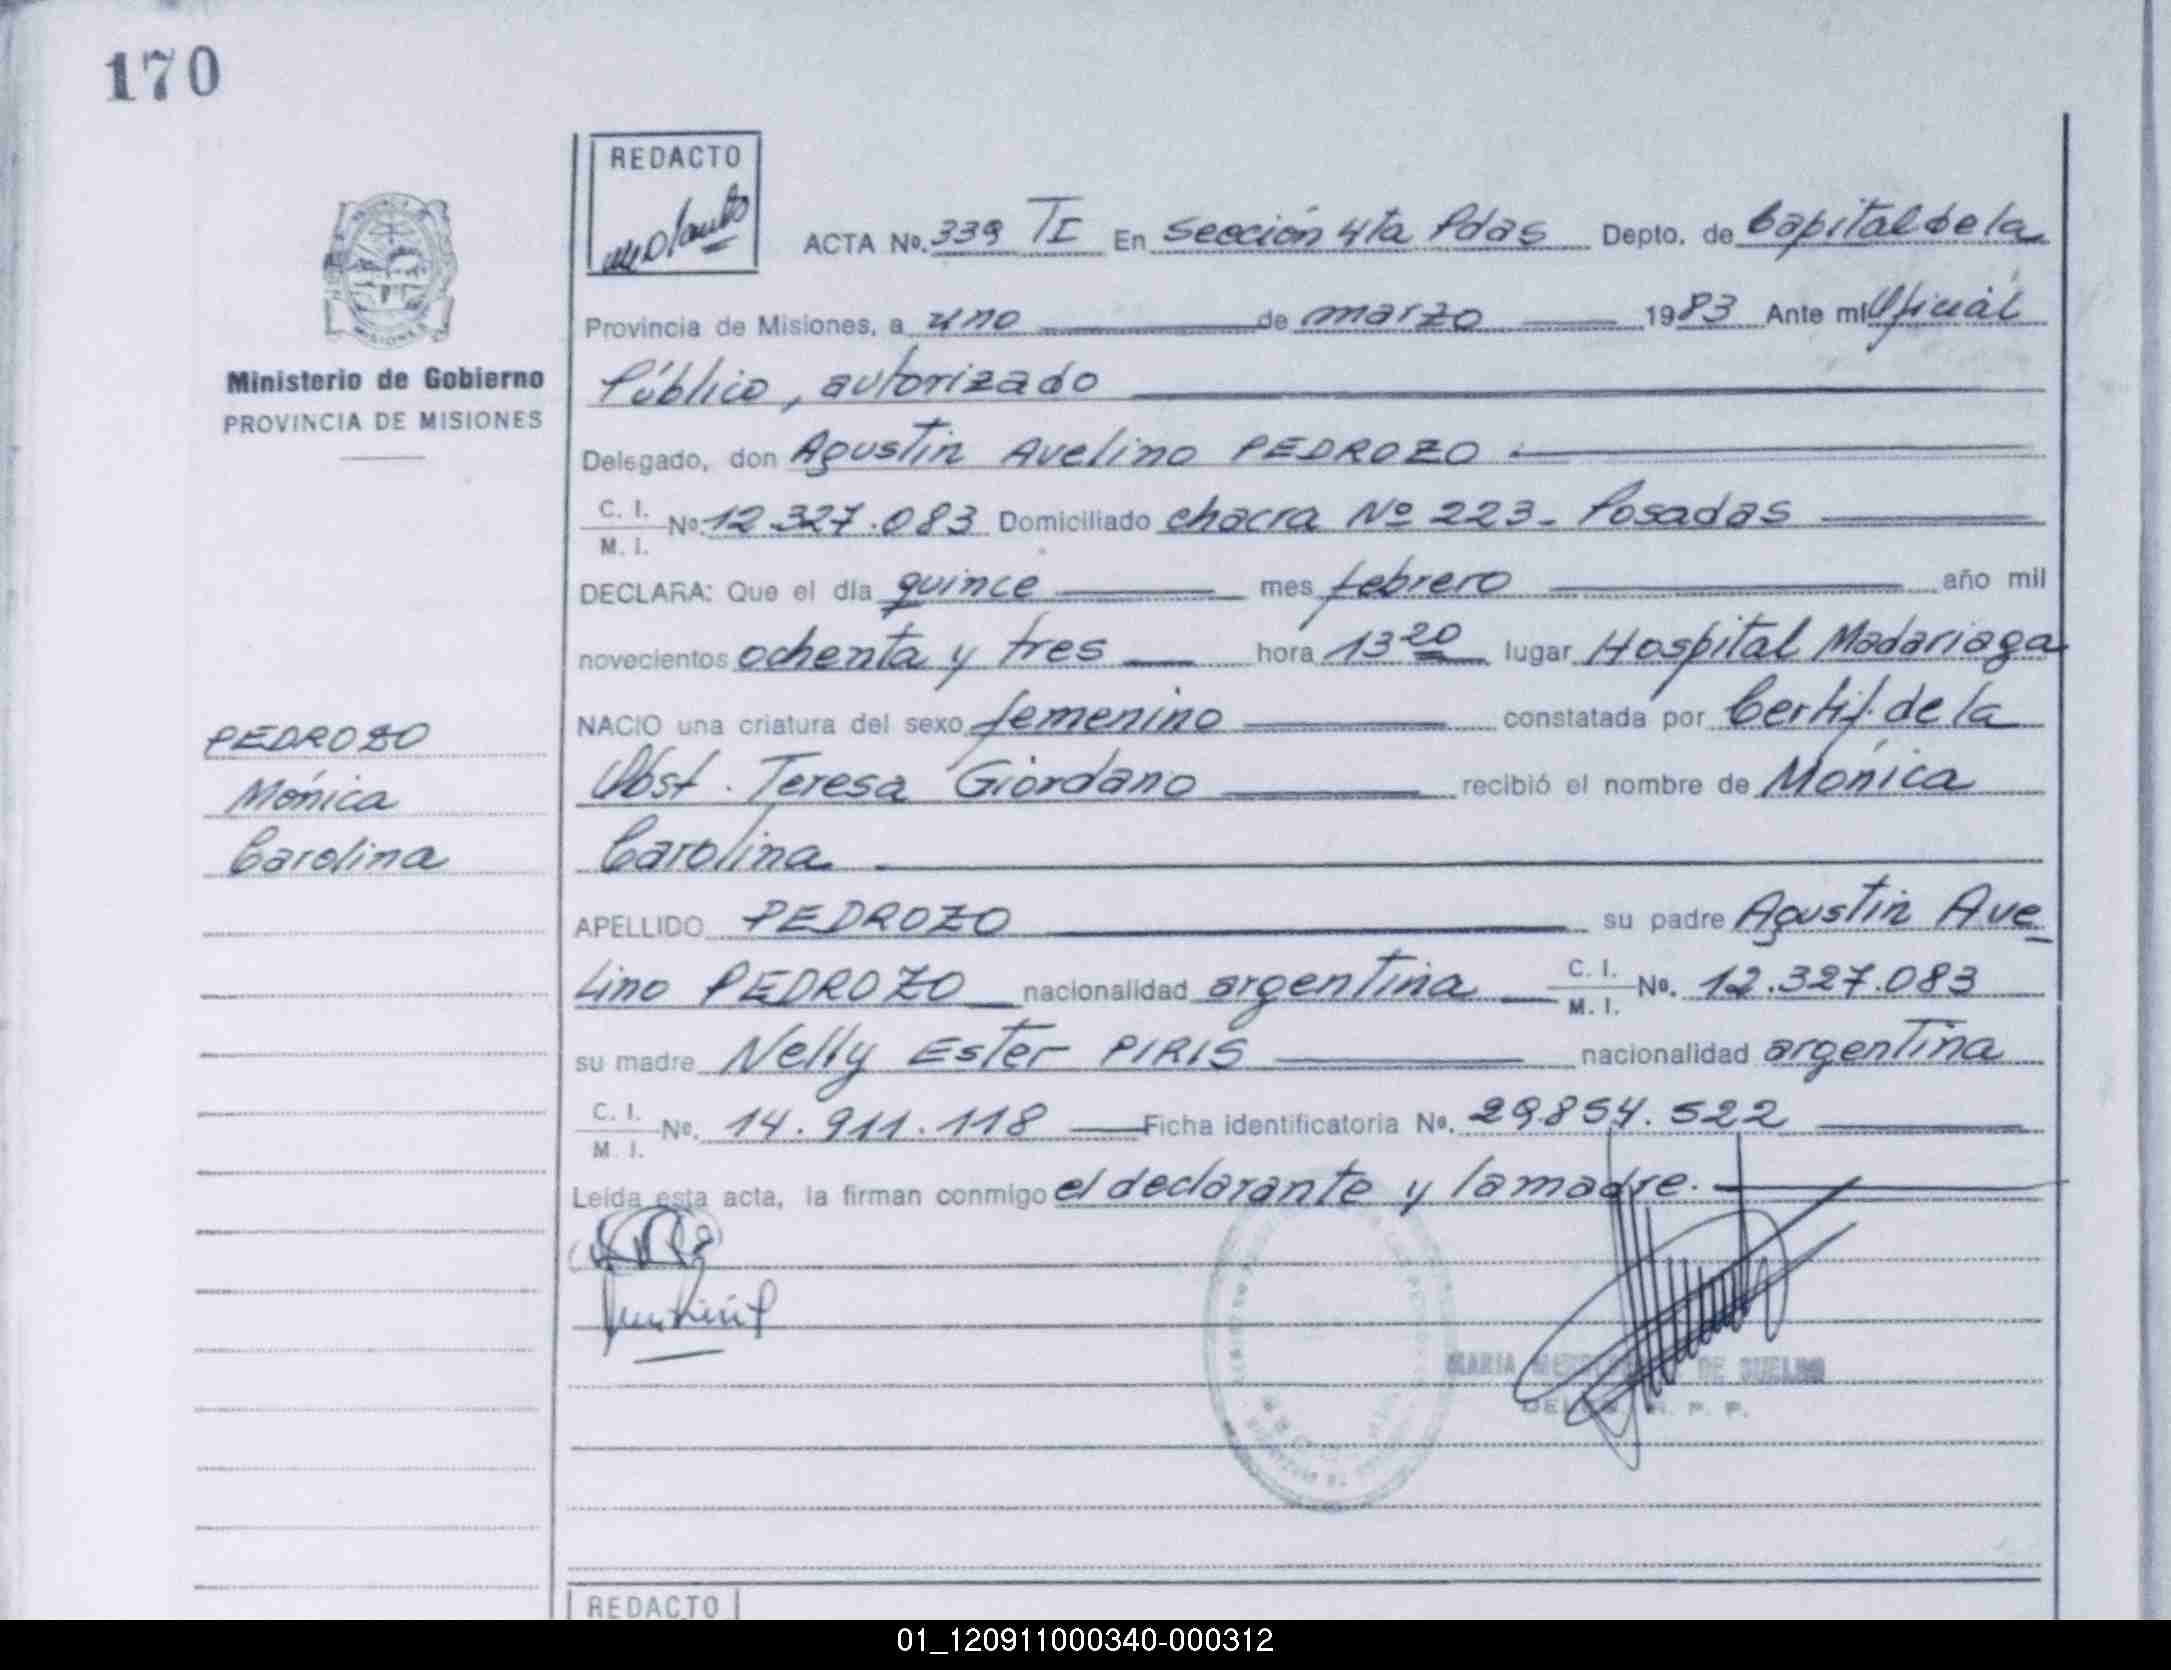 170
REDACTO
ACTA No. 339 TI En Sección 4ta Pdas Depto. de Capital de la
Provincia de Misiones, a uno de marzo 1983 Ante mi Oficial
Público, autorizado
Ministerio de Gobierno
PROVINCIA DE MISIONES
Delegado, don Agustin Avelino PEDROZO
C. I.
M. I. No. 12.327.083 Domiciliado chacra Nº 223 - Posadas
DECLARA: Que el día quince mes febrero año mil
novecientos ochenta y tres hora 13 20 lugar Hospital Madariaga
NACIO una criatura del sexo femenino constatada por Certif. de la
Obst. Teresa Giordano recibió el nombre de Mónica
Carolina
PEDROZO
Mónica
Carolina
APELLIDO PEDROZO su padre Agustin Ave
lino PEDROZO nacionalidad argentina C. I. M. I. No. 12.327.083
su madre Nelly Ester PIRIS nacionalidad argentina
C. I.
M. I. No. 14.911.118 Ficha identificatoria No. 29.854.522
Leída esta acta, la firman conmigo el declarante y la madre.
MARIA DE
R. P. P.
REDACTO
01_120911000340-000312